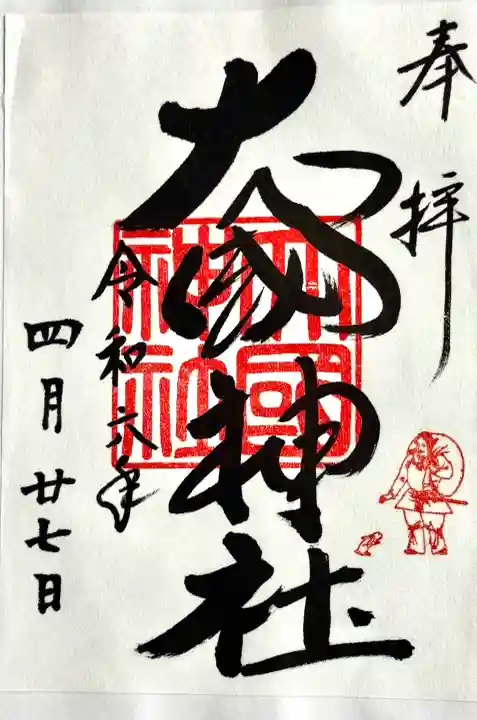 奉拝
大國神社
令和六年
四月廿七日